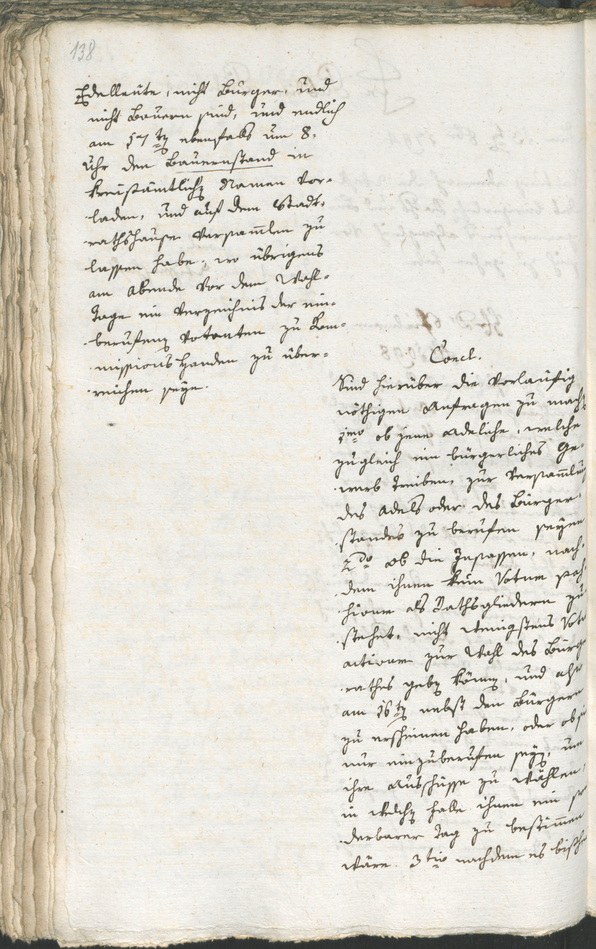 138
Edelleute, nicht Bürger, und
nicht Bauern sind, und endlich
am 17ten ebenfals um 8.
Uhr den Bauernstand in
kreisämtlichen Namen vor-
laden, und auf dem Stadt-
rathshause versammlen zu
lassen habe, wo übrigens
am Abende vor dem Wahl-
tage ein Verzeichniß der ein-
berufenen Votanten zu Kom-
missions Handen zu über-
reichen seye.
Concl.
Sind hierüber die vorläufig
nöthigen Anfragen zu mach
1mo ob jene Adeliche, welche
zugleich ein bürgerliches Ge-
werb treiben, zur Versammlung
des Adels oder des Bürger-
standes zu berufen seyen
2do ob die Insassen, nach-
dem ihnen kein Votum
als Rathsgliedern zu
stehet, nicht wenigstens
zur Wahl des Bürger
rathes geben können, und also
am 16ten nebst den Bürgern
zu erscheinen haben, oder ob sie
nur einzuberufen seyen, um
ihre Ausschüsse zu wählen,
in welchen Falle ihnen ein son
derbarer Tag zu bestimmen
wäre. 3tio nachdem es bishe